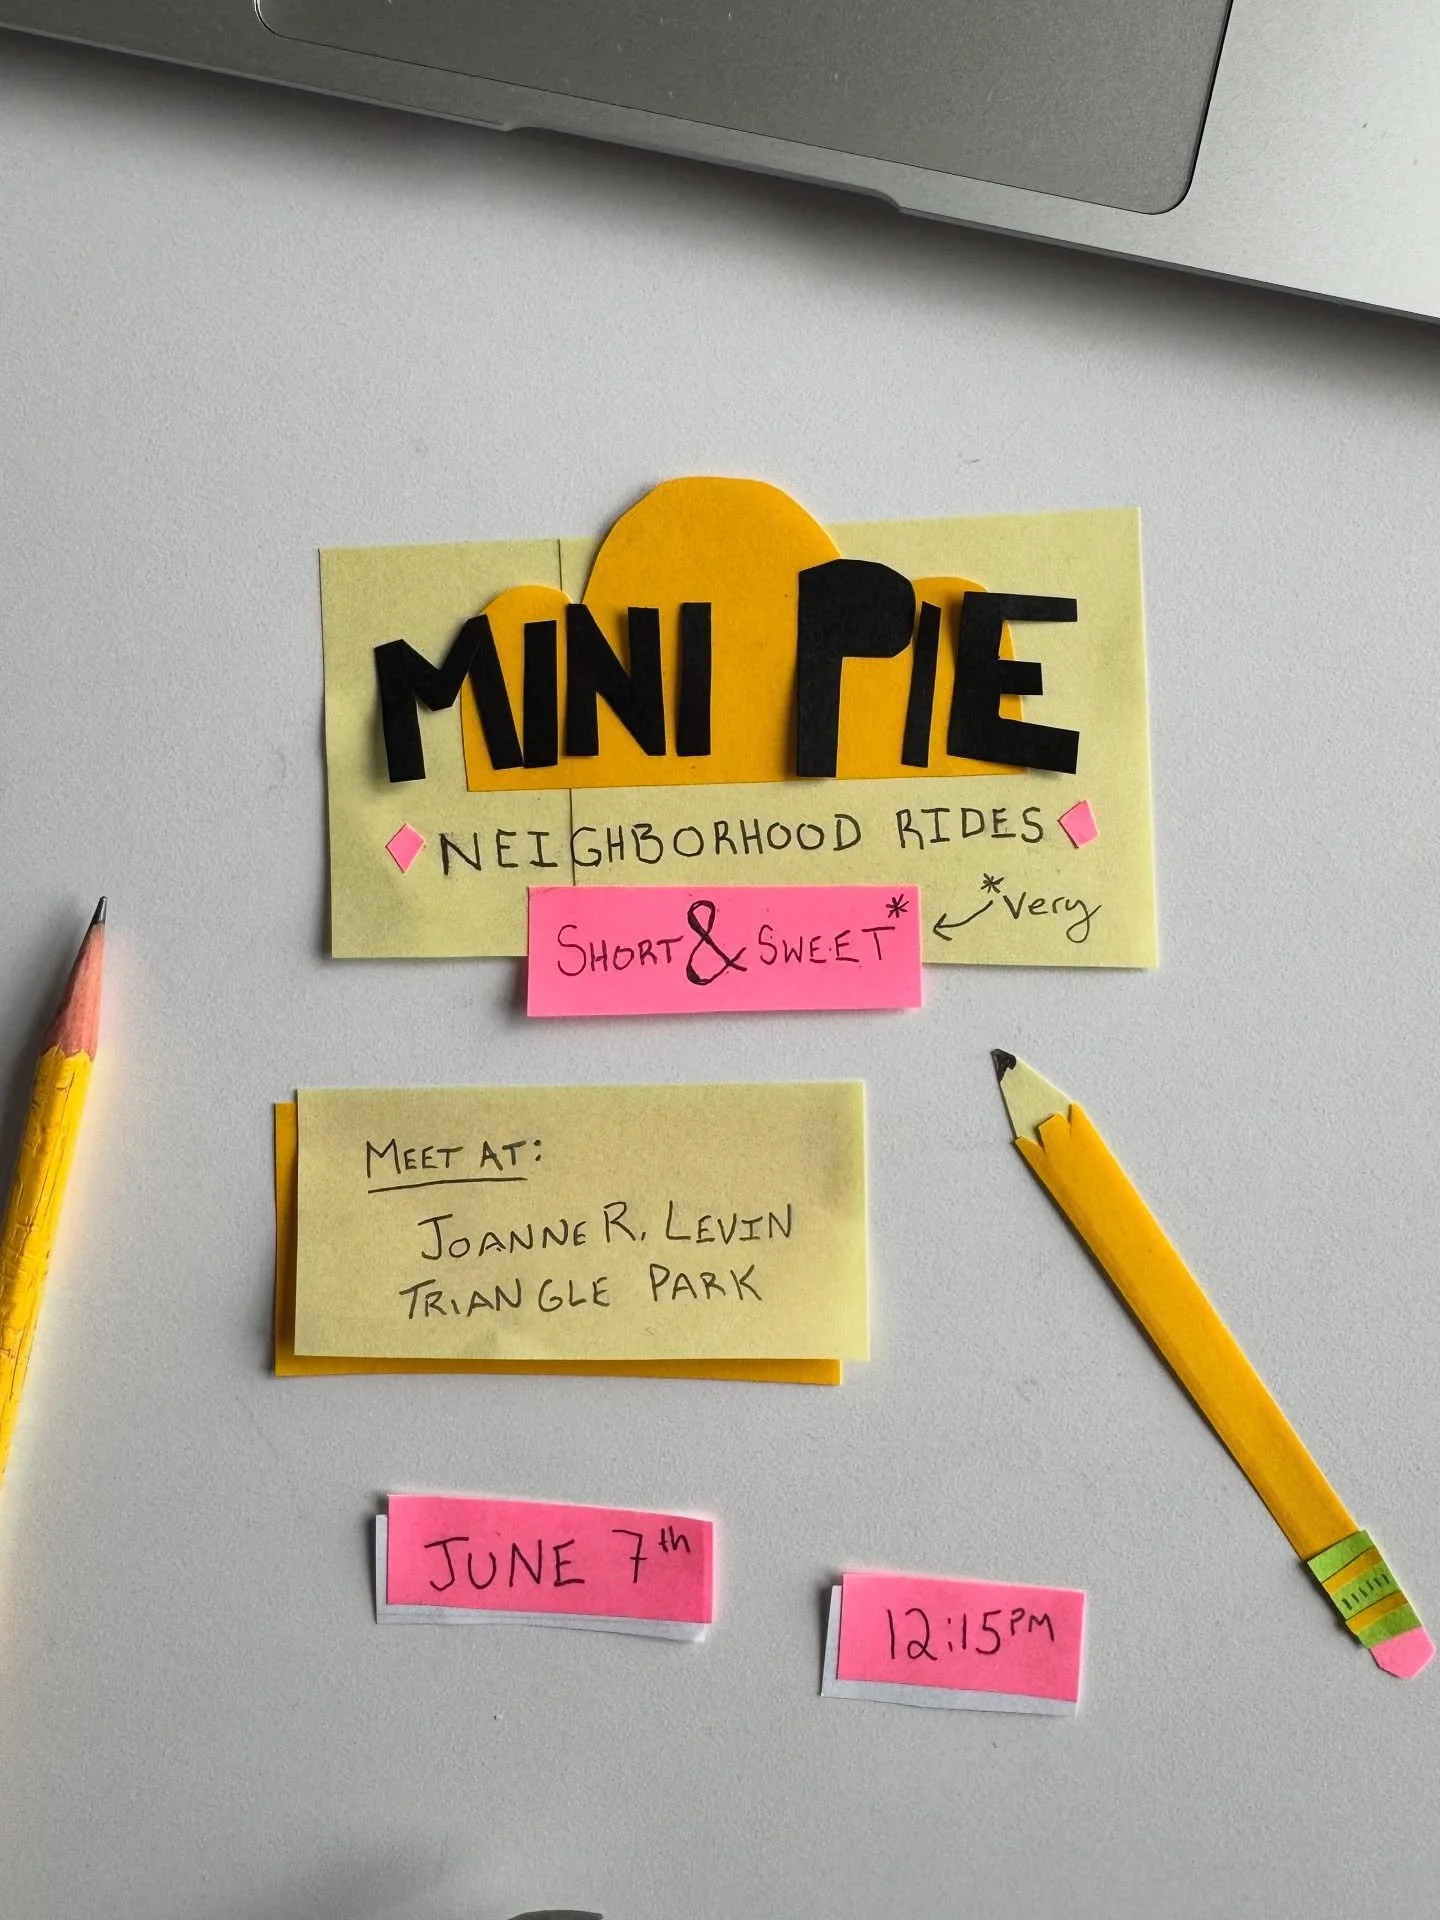 MINI PIE
NEIGHBORHOOD RIDES
SHORT & SWEET*
*Very
MEET AT:
JOANNE R. LEVIN
TRIANGLE PARK
JUNE 7th
12:15PM